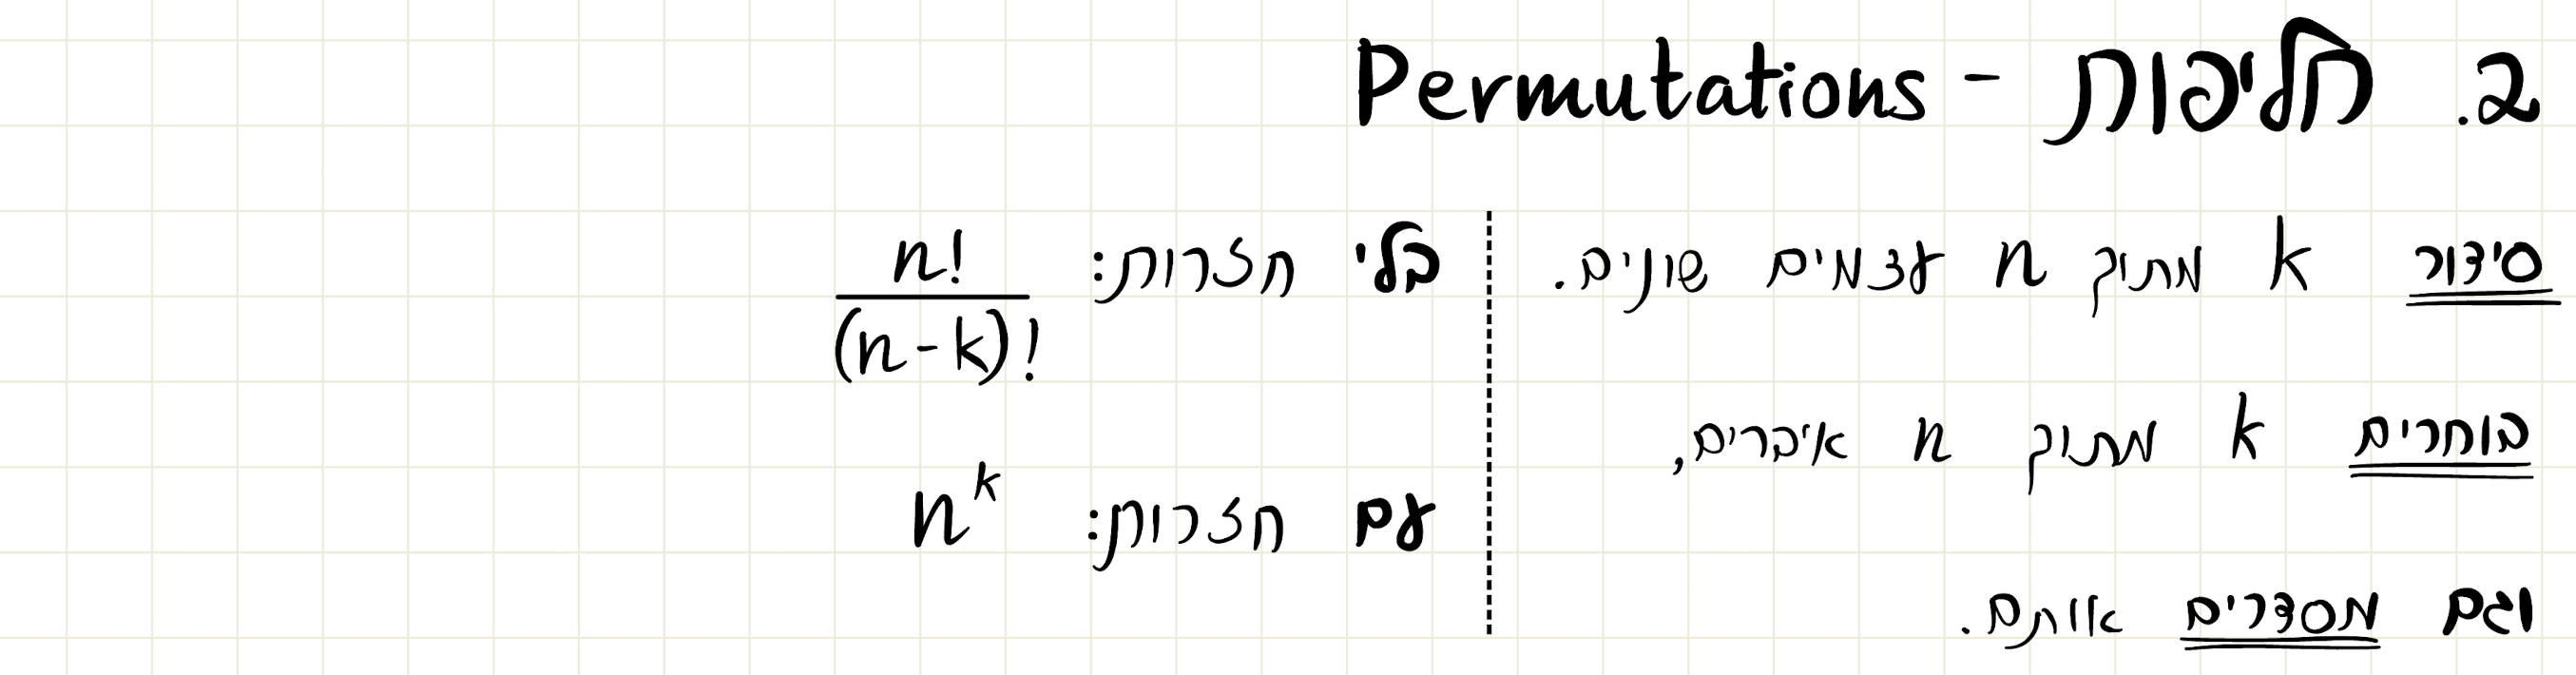 2. חליפות - Permutations
סידור k מתוך n עצמים שונים.
בוחרים k מתוך n איברים,
וגם מסדרים אותם.
בלי חזרות: n!/(n-k)!
עם חזרות: n^k